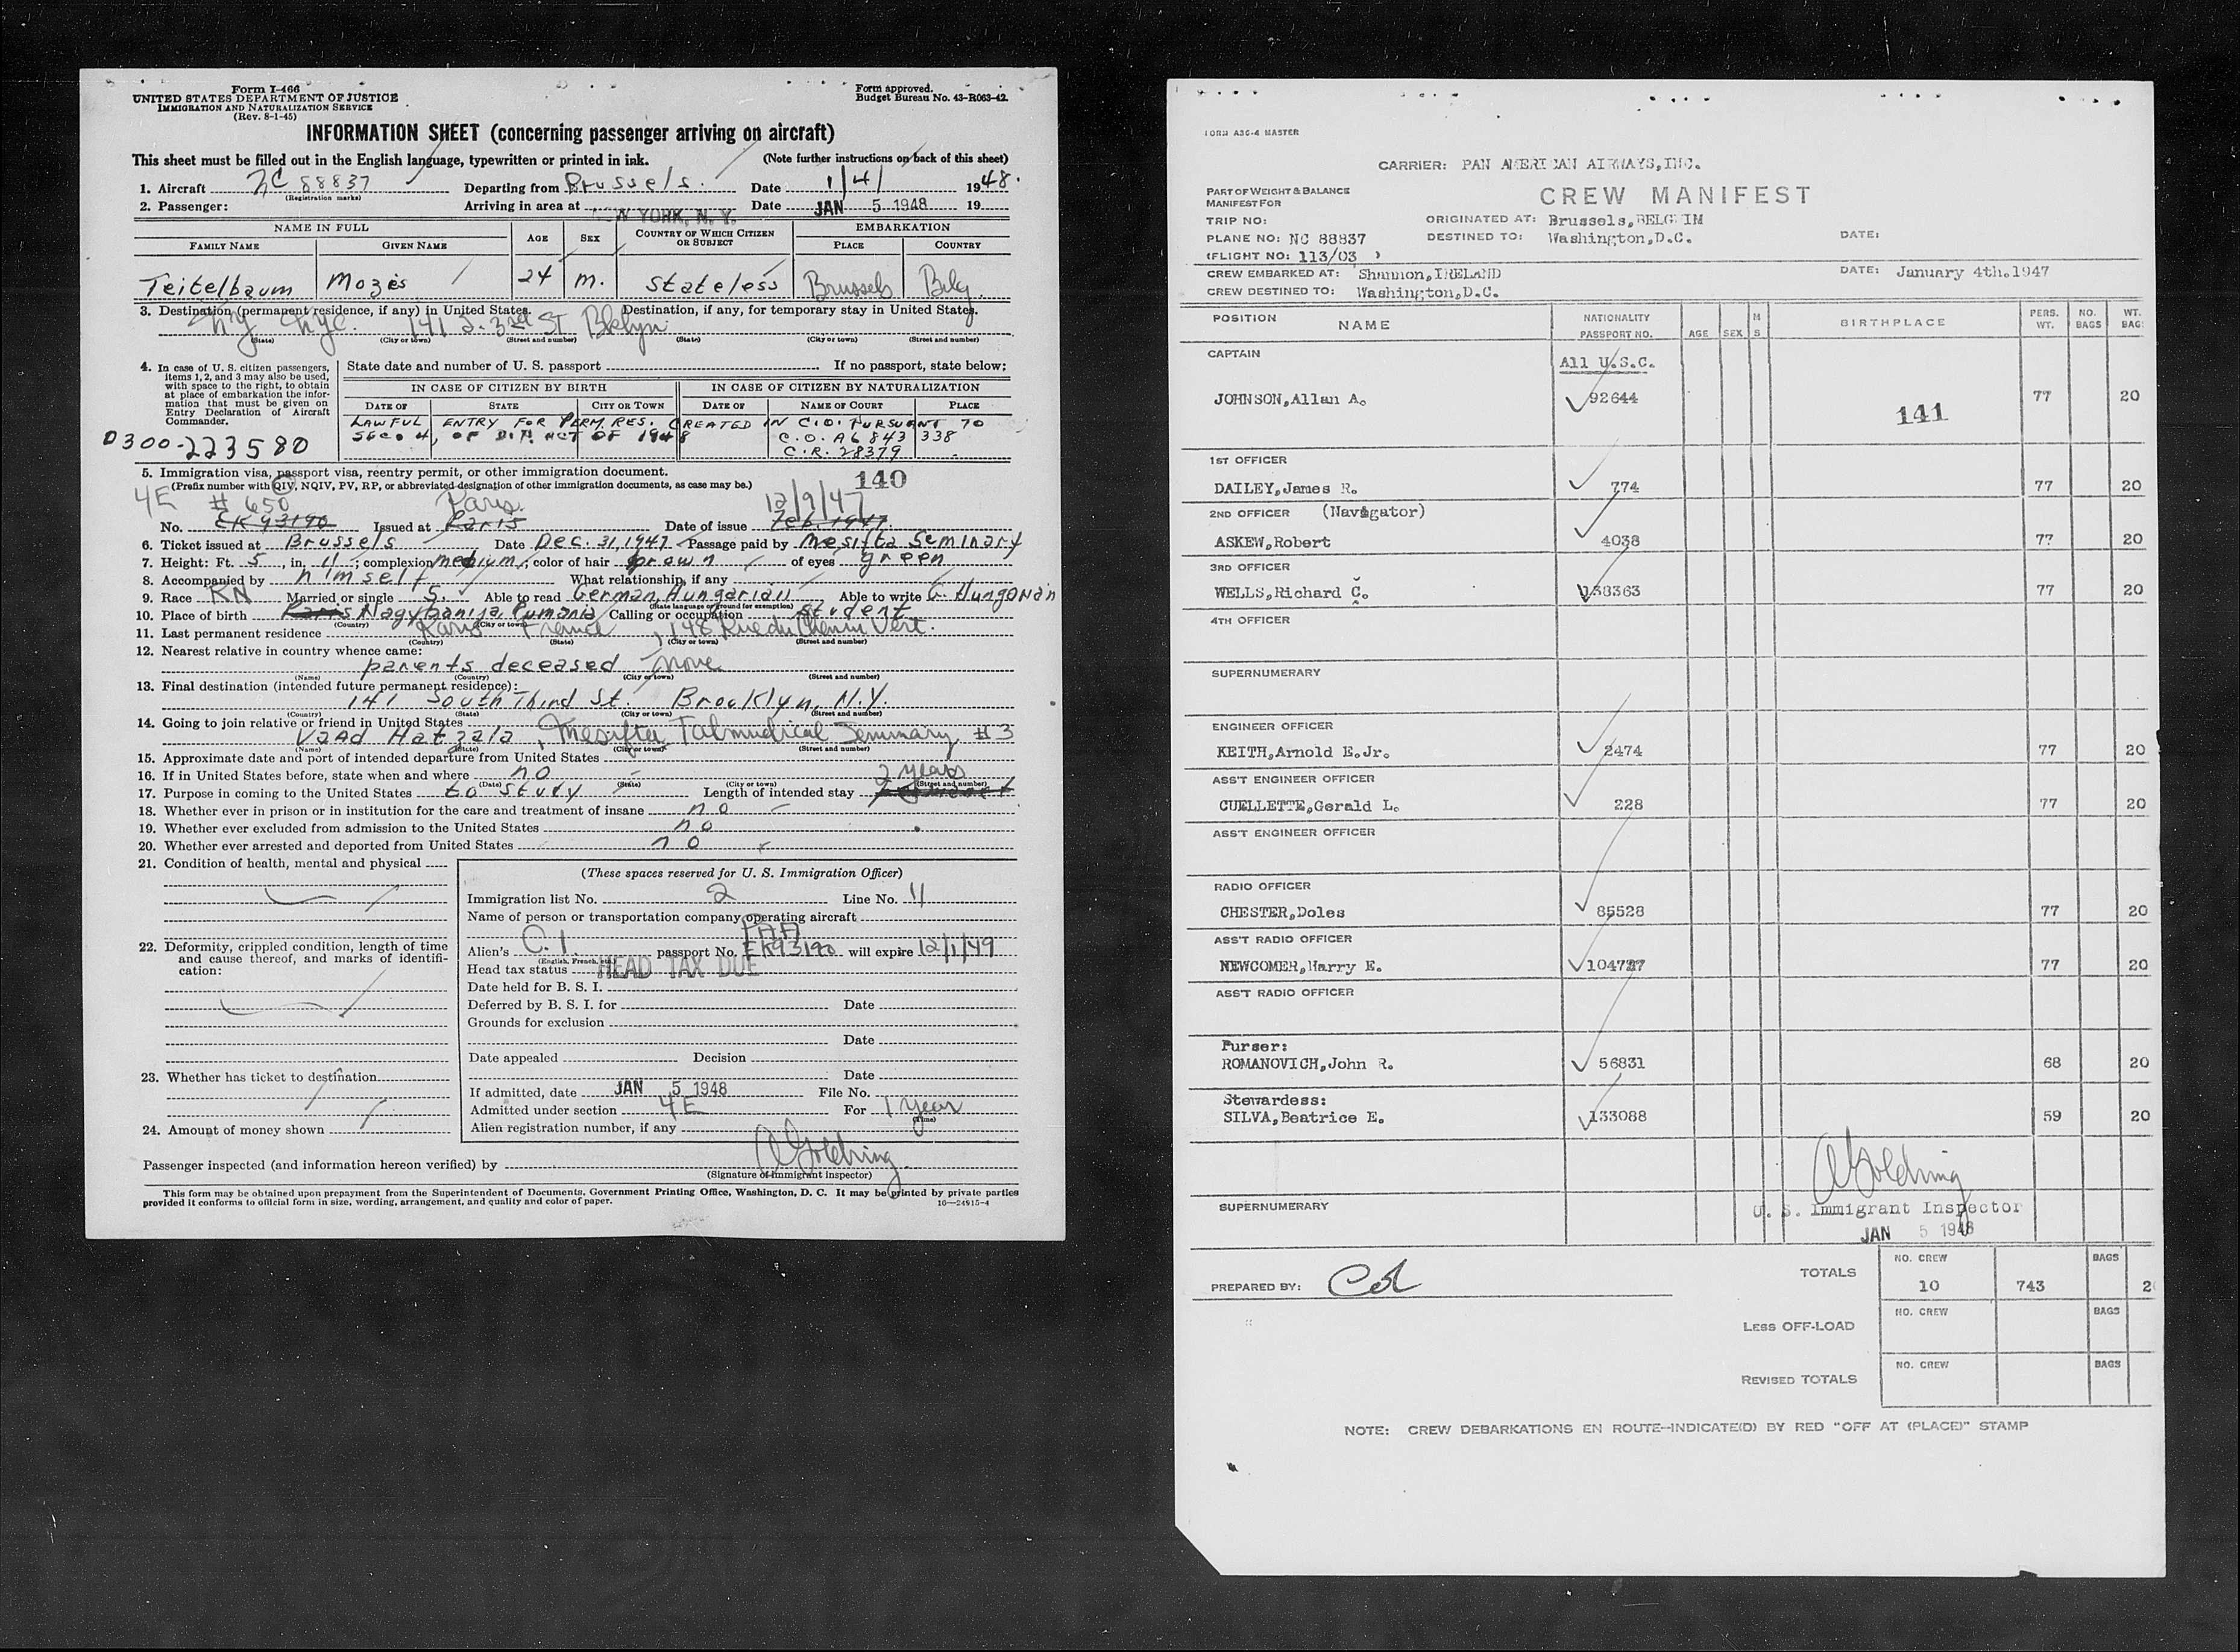 Form I-466
UNITED STATES DEPARTMENT OF JUSTICE
IMMIGRATION AND NATURALIZATION SERVICE
(Rev. 8-1-45)
Form approved.
Budget Bureau No. 43-R063-42.
INFORMATION SHEET (concerning passenger arriving on aircraft)
This sheet must be filled out in the English language, typewritten or printed in ink. (Note further instructions on back of this sheet)
1. Aircraft NC 88837 Departing from Brussels. Date 1/4/ 1948.
(Registration marks)
2. Passenger: Arriving in area at NEW YORK, N. Y. Date JAN 5 1948 19
NAME IN FULL AGE SEX COUNTRY OF WHICH CITIZEN OR SUBJECT EMBARKATION
FAMILY NAME GIVEN NAME PLACE COUNTRY
Teitelbaum Mozes 24 m. stateless Brussels Belg.
3. Destination (permanent residence, if any) in United States. Destination, if any, for temporary stay in United States.
NY NYC. 141 S. 3rd ST Bklyn
(State) (City or town) (Street and number) (State) (City or town) (Street and number)
4. In case of U. S. citizen passengers, items 1, 2, and 3 may also be used, with space to the right, to obtain at place of embarkation the information that must be given on Entry Declaration of Aircraft Commander.
0300-223580
State date and number of U. S. passport If no passport, state below:
IN CASE OF CITIZEN BY BIRTH IN CASE OF CITIZEN BY NATURALIZATION
DATE OF STATE CITY OR TOWN DATE OF NAME OF COURT PLACE
LAWFUL ENTRY FOR PERM. RES. CREATED IN C.O. PURSUANT TO
SEC. 4, OF D.P. ACT OF 1948 C.O. A6 843 338
C.R. 28379
5. Immigration visa, passport visa, reentry permit, or other immigration document.
(Prefix number with QIV, NQIV, PV, RP, or abbreviated designation of other immigration documents, as case may be.) 140
4E # 650 Paris 12/9/47
No. EK 93190 Issued at Paris Date of issue Feb. 1947
6. Ticket issued at Brussels Date Dec. 31, 1947 Passage paid by Mesifta Seminary
7. Height: Ft. 5, in. 11; complexion medium; color of hair brown of eyes green
8. Accompanied by himself What relationship, if any
9. Race RN Married or single S. Able to read German, Hungarian Able to write G. Hungarian
(State language or ground for exemption)
10. Place of birth Paris Nagybanija, Rumania Calling or occupation student
(Country) (City or town)
11. Last permanent residence Paris France, 148 Rue du Chemin Vert.
(Country) (State) (City or town) (Street and number)
12. Nearest relative in country whence came:
parents deceased none
(Name) (Country) (City or town) (Street and number)
13. Final destination (intended future permanent residence):
141 South Third St. Brooklyn, N.Y.
(Country) (State) (City or town) (Street and number)
14. Going to join relative or friend in United States
Vaad Hatzala, Mesifta Talmudical Seminary #3
(Name) (State) (City or town) (Street and number)
15. Approximate date and port of intended departure from United States
16. If in United States before, state when and where no 2 years
(Date) (State) (City or town) (Street and number)
17. Purpose in coming to the United States to study Length of intended stay
18. Whether ever in prison or in institution for the care and treatment of insane no
19. Whether ever excluded from admission to the United States no
20. Whether ever arrested and deported from United States no
21. Condition of health, mental and physical
22. Deformity, crippled condition, length of time and cause thereof, and marks of identification:
23. Whether has ticket to destination
24. Amount of money shown
(These spaces reserved for U. S. Immigration Officer)
Immigration list No. 2 Line No. 11
Name of person or transportation company operating aircraft PAA
Alien's C.I. passport No. EK93190 will expire 12/1/49
(English, French, etc.)
Head tax status HEAD TAX DUE
Date held for B. S. I.
Deferred by B. S. I. for Date
Grounds for exclusion
Date
Date appealed Decision
Date
If admitted, date JAN 5 1948 File No.
Admitted under section 4E For 1 year
(Time)
Alien registration number, if any
Passenger inspected (and information hereon verified) by A Goldring
(Signature of immigrant inspector)
This form may be obtained upon prepayment from the Superintendent of Documents, Government Printing Office, Washington, D. C. It may be printed by private parties
provided it conforms to official form in size, wording, arrangement, and quality and color of paper. 16-24915-4
FORM A3C-4 MASTER
CARRIER: PAN AMERICAN AIRWAYS, INC.
PART OF WEIGHT & BALANCE
MANIFEST FOR
CREW MANIFEST
TRIP NO: ORIGINATED AT: Brussels, BELGIUM
PLANE NO: NC 88837 DESTINED TO: Washington, D.C. DATE:
(FLIGHT NO: 113/03 )
CREW EMBARKED AT: Shannon, IRELAND DATE: January 4th. 1947
CREW DESTINED TO: Washington, D.C.
POSITION NAME NATIONALITY PASSPORT NO. AGE SEX M S BIRTHPLACE PERS. WT. NO. BAGS WT. BAG
CAPTAIN All U.S.C.
JOHNSON, Allan A. 92644 141 77 20
1ST OFFICER
DAILEY, James R. 774 77 20
2ND OFFICER (Navigator)
ASKEW, Robert 4038 77 20
3RD OFFICER
WELLS, Richard C. 138363 77 20
4TH OFFICER
SUPERNUMERARY
ENGINEER OFFICER
KEITH, Arnold E. Jr. 2474 77 20
ASS'T ENGINEER OFFICER
CUELLETTE, Gerald L. 228 77 20
ASS'T ENGINEER OFFICER
RADIO OFFICER
CHESTER, Doles 85528 77 20
ASS'T RADIO OFFICER
NEWCOMER, Harry E. 104727 77 20
ASS'T RADIO OFFICER
Purser:
ROMANOVICH, John R. 56831 68 20
Stewardess:
SILVA, Beatrice E. 133088 59 20
A Goldring
SUPERNUMERARY U. S. Immigrant Inspector
JAN 5 1948
PREPARED BY: TOTALS NO. CREW 10 743 BAGS 2
LESS OFF-LOAD NO. CREW BAGS
REVISED TOTALS NO. CREW BAGS
NOTE: CREW DEBARKATIONS EN ROUTE-INDICATE(D) BY RED "OFF AT (PLACE)" STAMP